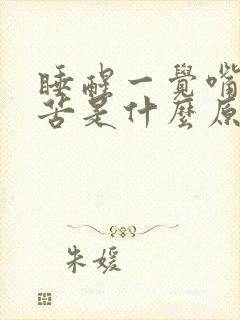 睡醒一覺嘴
苦是什麼原
朱媛